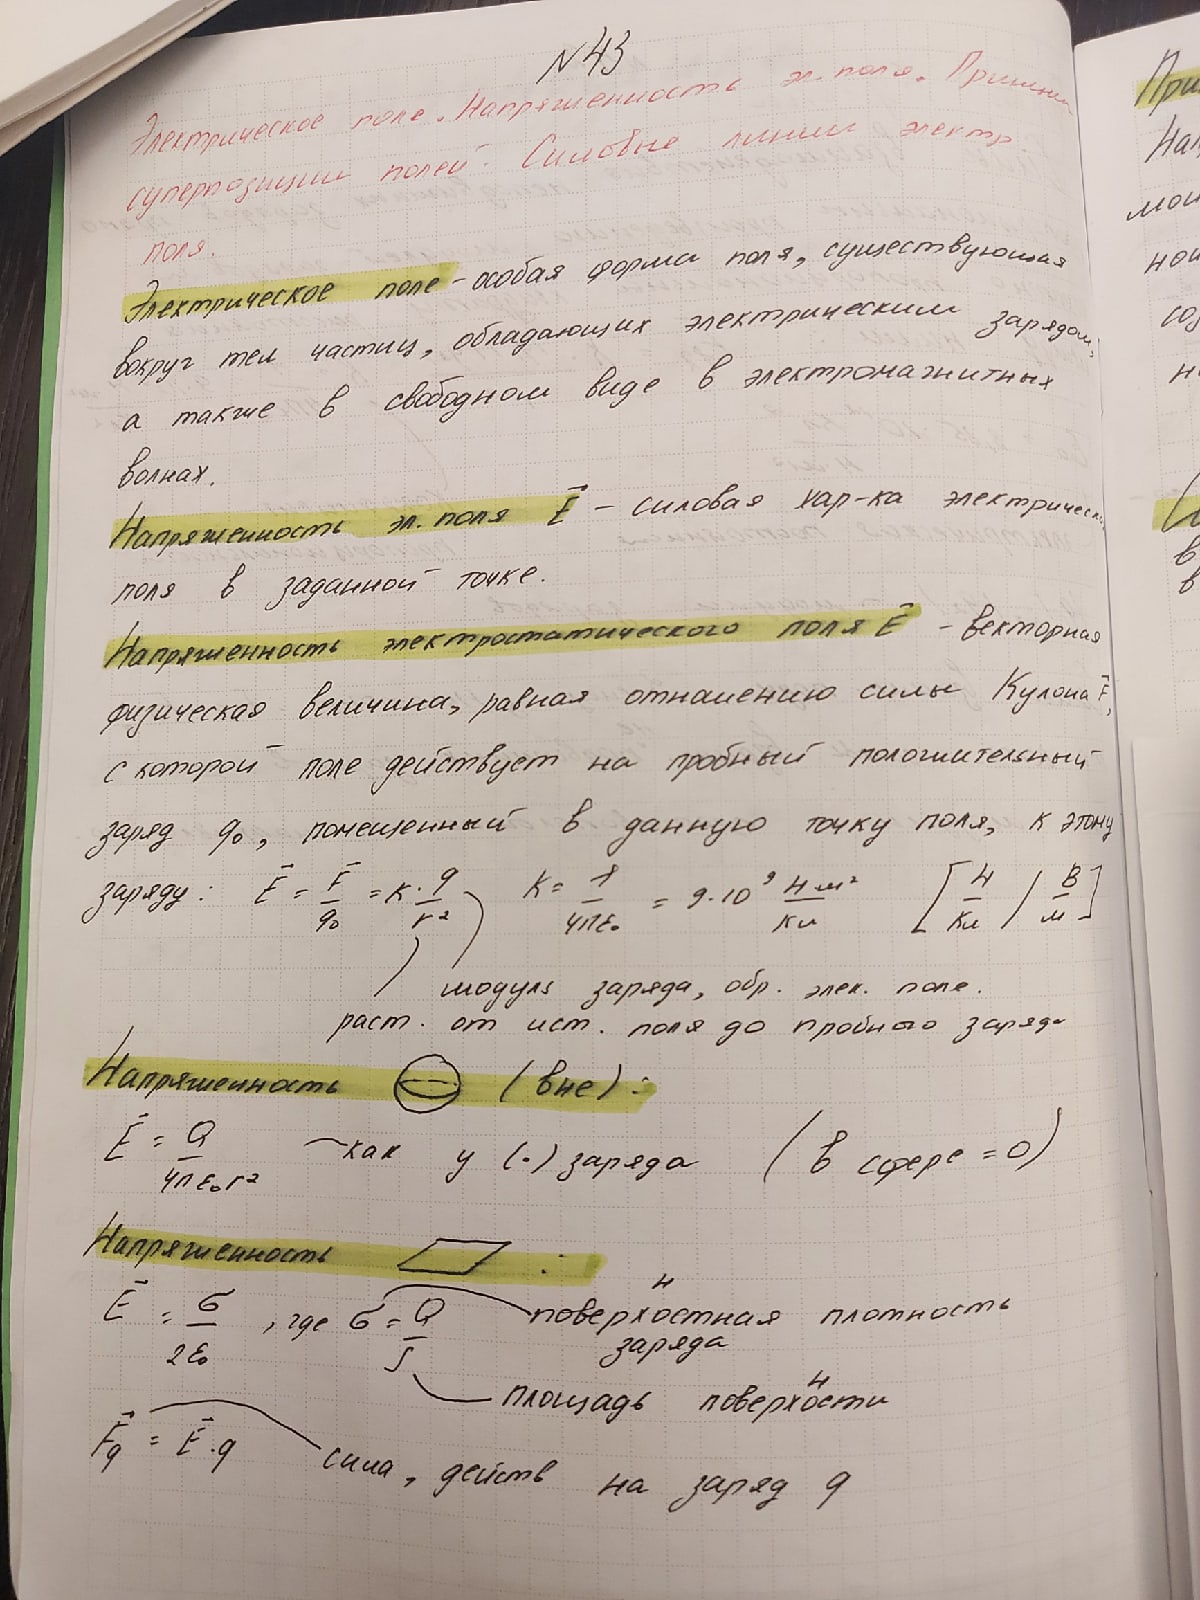 N43
Электрическое поле. Напряженность эл. поля. Принцип
суперпозиции полей. Силовые линии электр.
поля.
Электрическое поле - особая форма поля, существующая
вокруг тел частиц, обладающих электрическим зарядом,
а также в свободном виде в электромагнитных
волнах.
Напряженность эл. поля E⃗ - силовая хар-ка электрическ
поля в заданной точке.
Напряженность электростатического поля E⃗ - векторная
физическая величина, равная отношению силы Кулона F⃗,
с которой поле действует на пробный положительный
заряд q₀, помещенный в данную точку поля, к этому
заряду: E⃗ = F⃗/q₀ = к · q/r² K = 1/4πε₀ = 9·10⁹ Нм²/Кл [Н/Кл / В/м]
модуль заряда, обр. элек. поле.
раст. от ист. поля до пробного заряда
Напряженность (вне):
E⃗ = Q/4πε₀r² - как у (·) заряда (в сфере = 0)
Напряженность :
E⃗ = σ/2ε₀, где σ = Q/S поверхностная плотность
заряда
площадь поверхности
F⃗q = E⃗·q
сила, действ на заряд q
При
Нап
мои
ной
соз
на
в
в